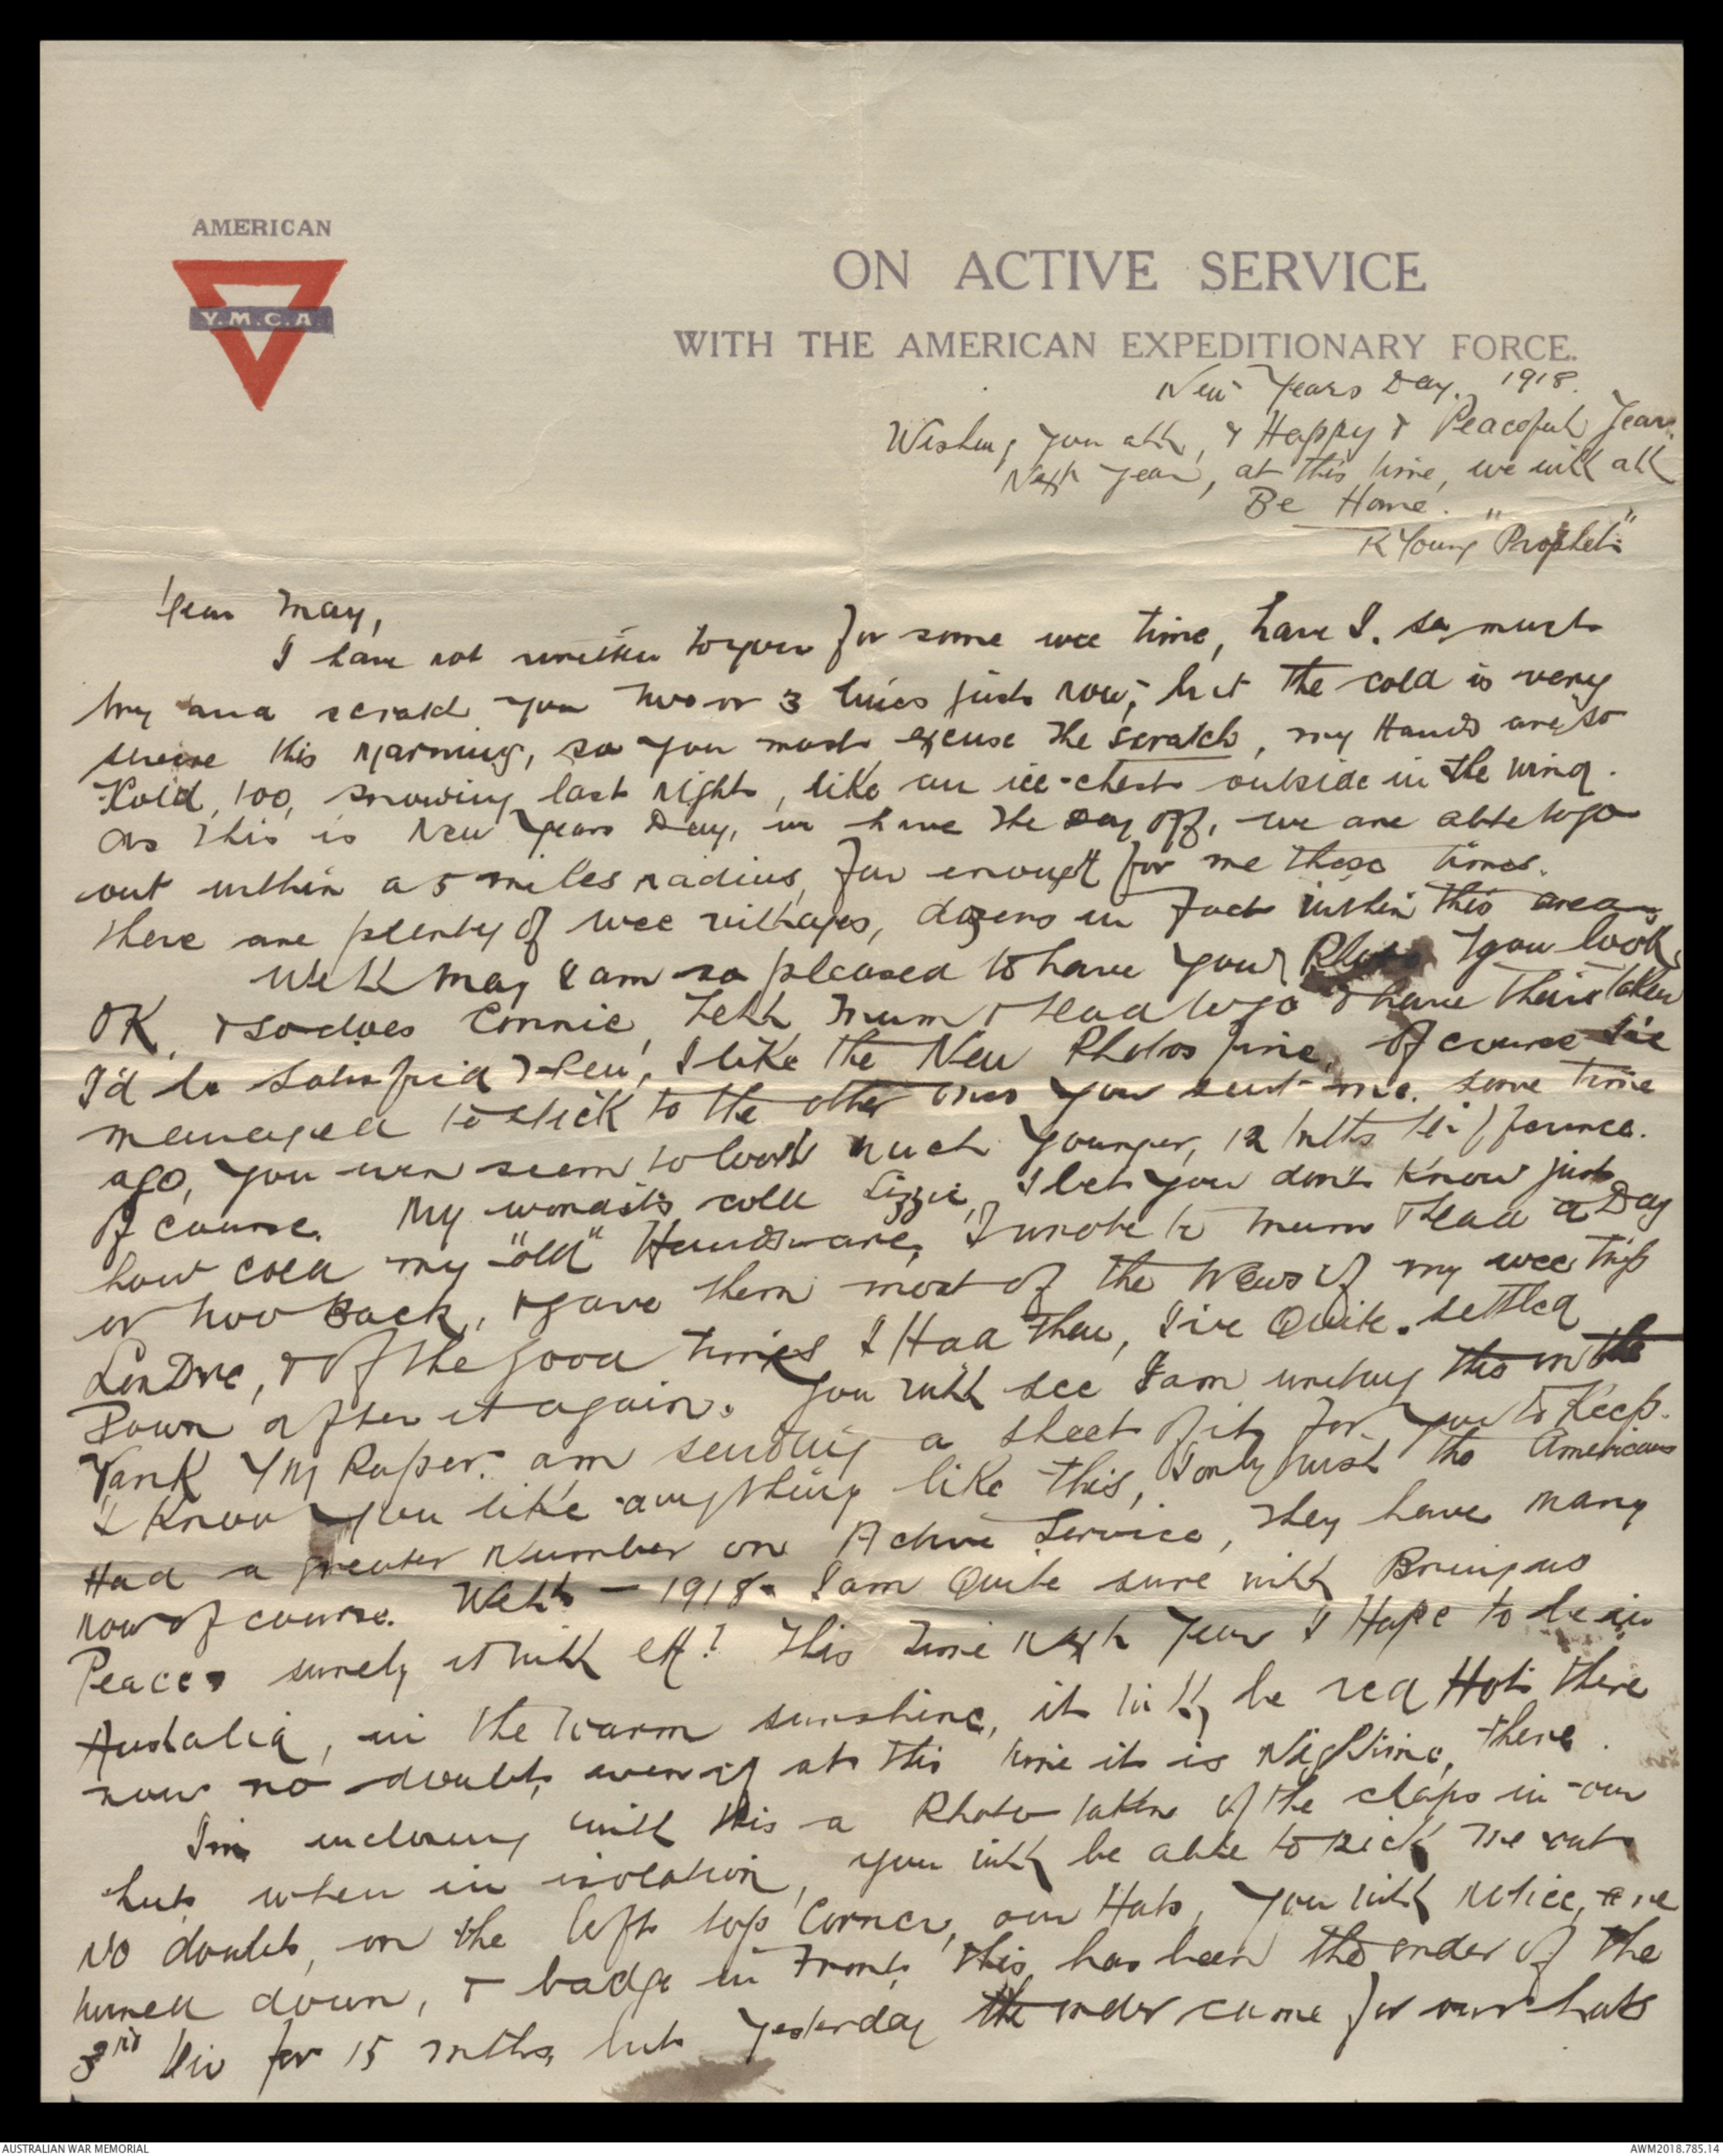 AMERICAN
Y.M.C.A.
ON ACTIVE SERVICE
WITH THE AMERICAN EXPEDITIONARY FORCE.
New Years Day. 1918.
Wishing you all, a Happy & Peaceful Year.
Next year, at this time, we will all
Be Home.
K Young "Prophet"
Dear May,
I have not written to you for some wee time, have I. so must
try and scratch you two or 3 lines just now, but the cold is very
severe this morning, so you must excuse the scratch, my Hands are so
Kold, too, snowing last night, like an ice-chest outside in the wind.
As this is New Years Day, we have the day off, we are able to go
out within a 5 miles radius, far enough for me these times.
there are plenty of wee villages, dozens in fact within this area.
Well May I am so pleased to have your Photo & you look
OK, & so does Connie, tell Mum & Dad to go & have theirs taken
I'd be satisfied then, I like the New Photos fine, of course I've
managed to stick to the other ones you sent me. some time
ago, you even seem to look much younger, 12 mths difference.
of course. My word its cold Lizzie, I bet you don't know just
how cold my "old" Handsare, I wrote to Mum & Dad a Day
or two Back, & gave them most of the News of my wee trip
LonDre, & of the good times I Had there, I've Quite settled
Down after it again. You will see I am writing this on the
Yank YM Paper. am sending a sheet of it for you to Keep.
I Know you like anything like this, I only wish the Americans
Had a greater Number on Active Service, They have many
now of course. Well - 1918. I am Quite sure will Bring us
Peace surely it will eh! This time next Year I Hope to be in
Australia, in the warm sunshine, it will be red Hot there
now no doubt, even if at this time it is Nightime, there.
I'm inclosing with this a Photo taken of the chaps in our
hut when in isolation, you will be able to pick me out
No doubt, on the left top Corner, our Hats, you will notice, are
turned down, & badge in Front, this has been the order of the
3rd Div for 15 mths, but yesterday the order came for our hats
AUSTRALIAN WAR MEMORIAL
AWM2018.785.14